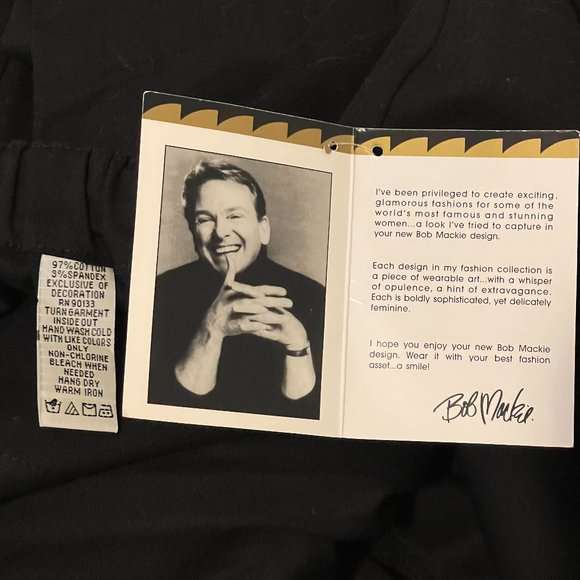 97% COTTON
3% SPANDEX
EXCLUSIVE OF
DECORATION
RN 90133
TURN GARMENT
INSIDE OUT
HAND WASH COLD
WITH LIKE COLORS
ONLY
NON-CHLORINE
BLEACH WHEN
NEEDED
HANG DRY
WARM IRON
I've been privileged to create exciting,
glamorous fashions for some of the
world's most famous and stunning
women...a look I've tried to capture in
your new Bob Mackie design.
Each design in my fashion collection is
a piece of wearable art...with a whisper
of opulence, a hint of extravagance.
Each is boldly sophisticated, yet delicately
feminine.
I hope you enjoy your new Bob Mackie
design. Wear it with your best fashion
asset...a smile!
Bob Mackie.